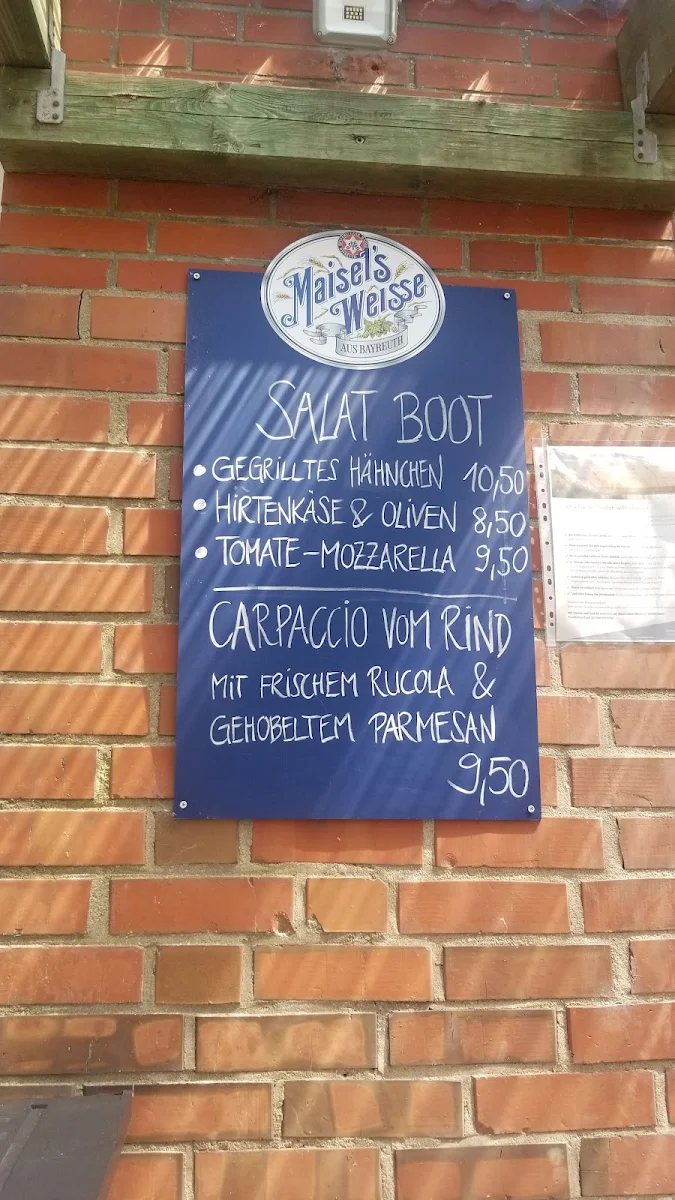 Maisel's
Weisse
AUS BAYREUTH
SALAT BOOT
• GEGRILLTES HÄHNCHEN 10,50
• HIRTENKÄSE & OLIVEN 8,50
• TOMATE-MOZZARELLA 9,50
CARPACCIO VOM RIND
MIT FRISCHEM RUCOLA &
GEHOBELTEM PARMESAN
9,50